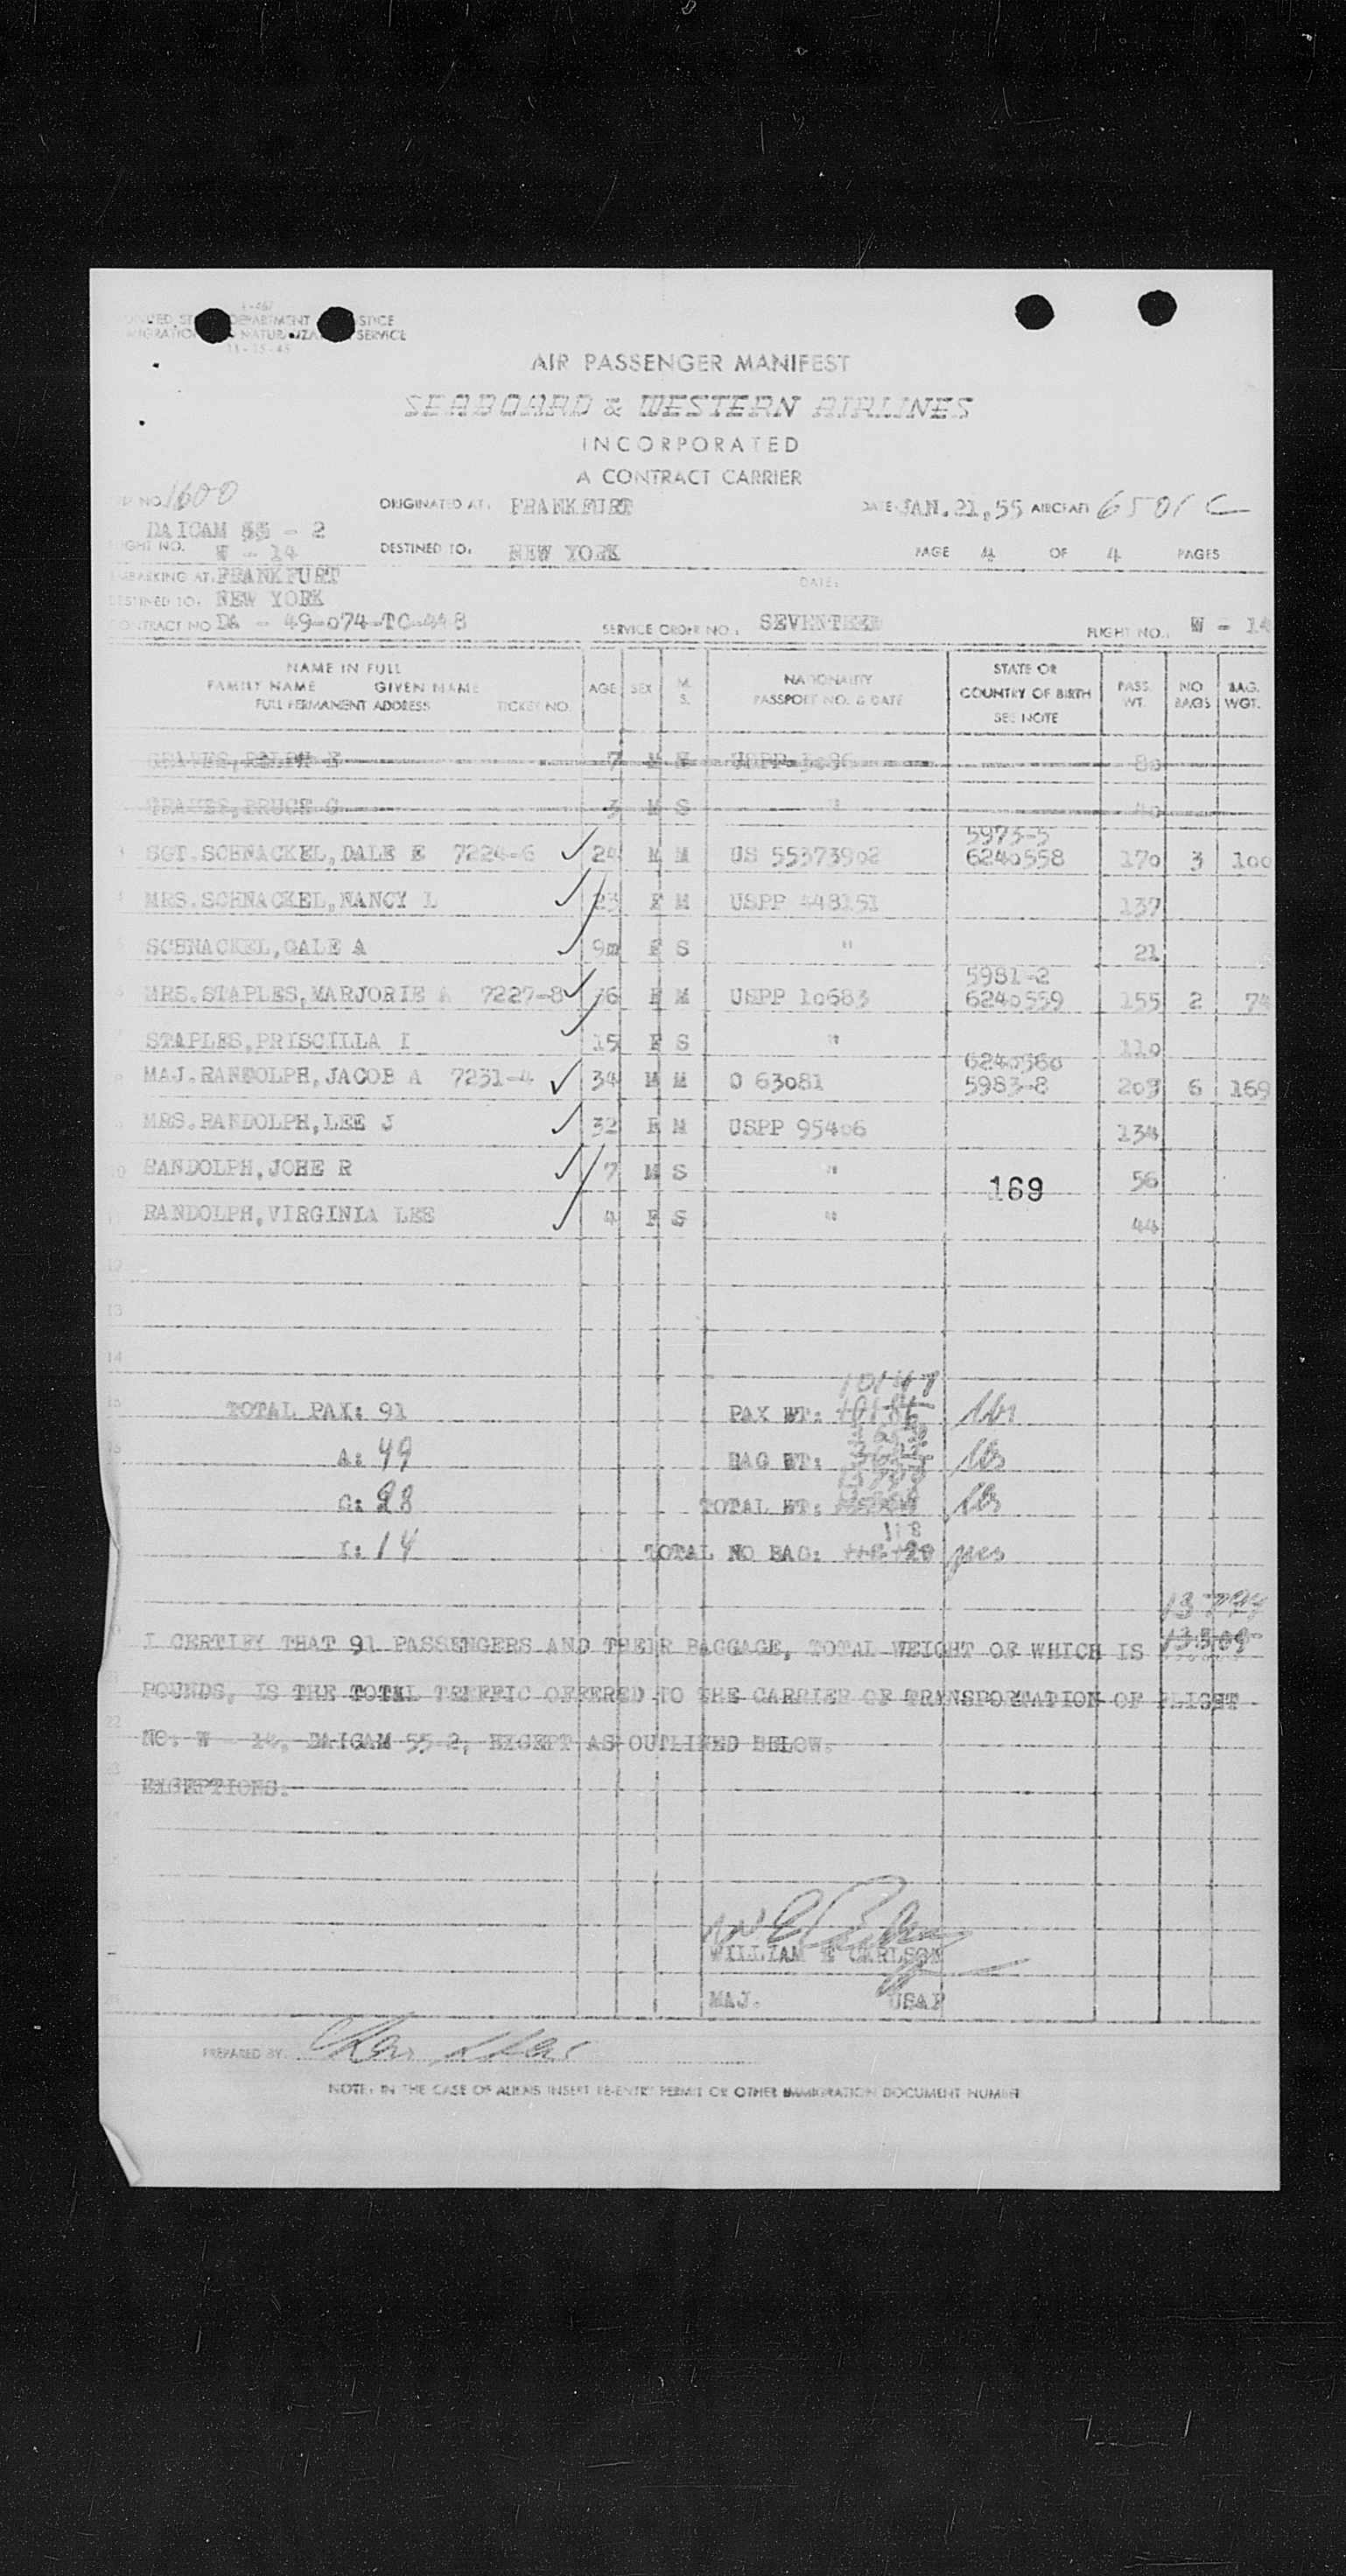 AIR PASSENGER MANIFEST
SEABOARD & WESTERN AIRLINES
INCORPORATED
A CONTRACT CARRIER
NO. 1600 ORIGINATED AT: FRANKFURT DATE: JAN. 21, 55 AIRCRAFT 6501 C
DAICAM 55 - 2
W - 14 DESTINED TO: NEW YORK PAGE 4 OF 4 PAGES
FRANKFURT DATE:
NEW YORK
DA - 49-074-TC-448 SERVICE ORDER NO.: SEVENTEEN FLIGHT NO.: W - 14
NAME IN FULL
FAMILY NAME GIVEN NAME
FULL PERMANENT ADDRESS TICKET NO.
AGE SEX M. S.
NATIONALITY
PASSPORT NO. & DATE
STATE OR
COUNTRY OF BIRTH
SEE NOTE
PASS. WT. NO BAGS BAG. WGT.
RALPH 7 M 80
BRUCE 3 M S "
5973-5
SGT. SCHNACKEL, DALE E 7224-6 24 M M US 55373902 6240558 170 3 100
MRS. SCHNACKEL, NANCY L 23 F M USPP 448151 137
SCHNACKEL, GALE A 9m F S " 21
5981-2
MRS. STAPLES, MARJORIE A 7227-8 36 F M USPP 10683 6240559 155 2 74
STAPLES, PRISCILLA I 15 F S " 110
6240560
MAJ. RANDOLPH, JACOB A 7231-4 34 M M O 63081 5983-8 203 6 169
MRS. RANDOLPH, LEE J 32 F M USPP 95406 134
RANDOLPH, JOHE R 7 M S " 56
169
RANDOLPH, VIRGINIA LEE 4 F S " 44
12
13
14
10147
TOTAL PAX: 91 PAX WT: lbs
A: 49 BAG WT: lbs
C: 28 TOTAL WT: lbs
118
I: 14 TOTAL NO BAG: pcs
I CERTIFY THAT 91 PASSENGERS AND THEIR BACGAGE, TOTAL WEIGHT OF WHICH IS
POUNDS, IS THE TOTAL TRAFFIC OFFERED TO THE CARRIER OF TRANSPORTATION OF FLIGHT
NO. W - 14, DAICAM 55-2, EXCEPT AS OUTLINED BELOW.
EXCEPTIONS:
WILLIAM CARLSON
MAJ. USAF
PREPARED BY
NOTE: IN THE CASE OF ALIENS INSERT RE-ENTRY PERMIT OR OTHER IMMIGRATION DOCUMENT NUMBER